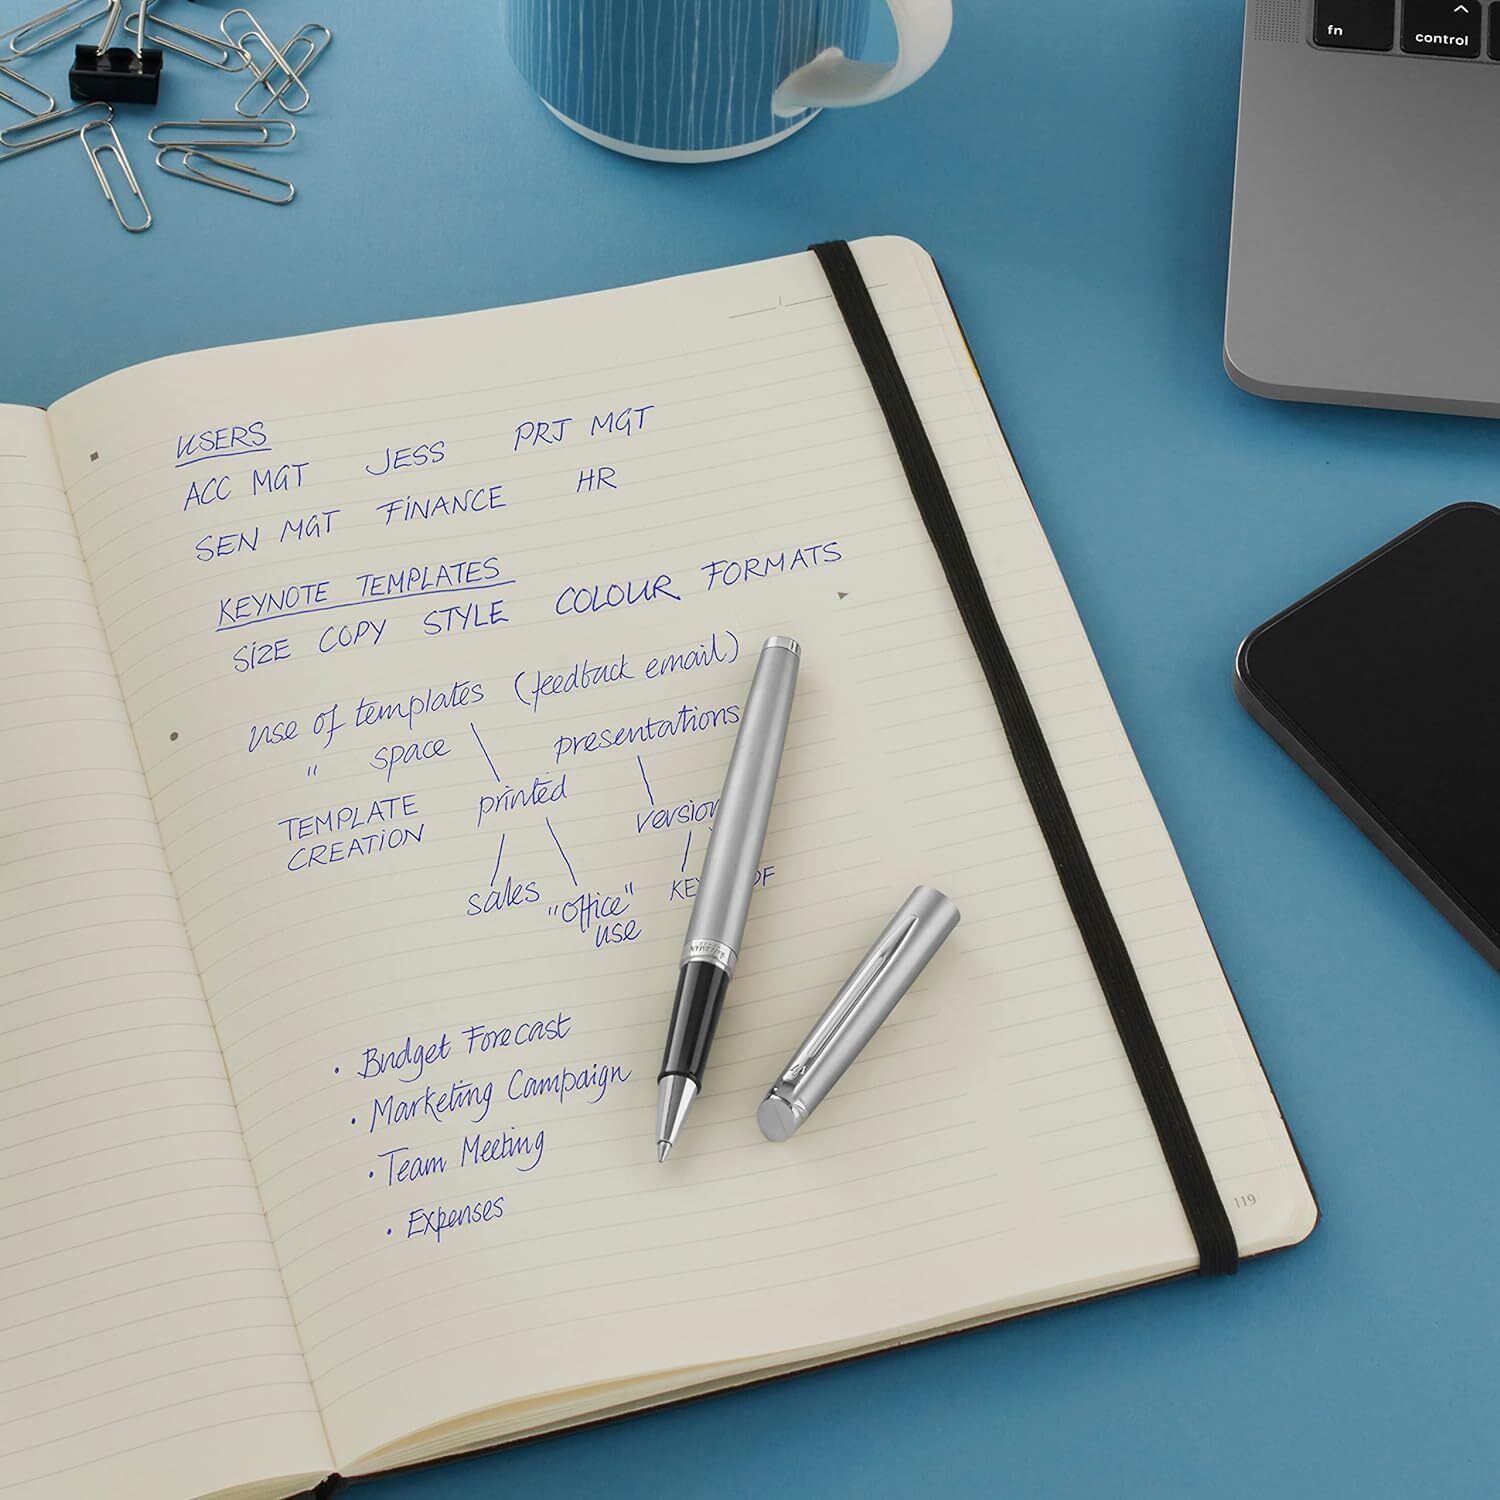 fn
control
USERS
ACC MGT JESS PRJ MGT
SEN MGT FINANCE HR
KEYNOTE TEMPLATES
SIZE COPY STYLE COLOUR FORMATS
use of templates (feedback email)
" space presentations
TEMPLATE printed version
CREATION
sales "office" KEY
use
WATERMAN
• Budget Forecast
• Marketing Campaign
• Team Meeting
• Expenses
119